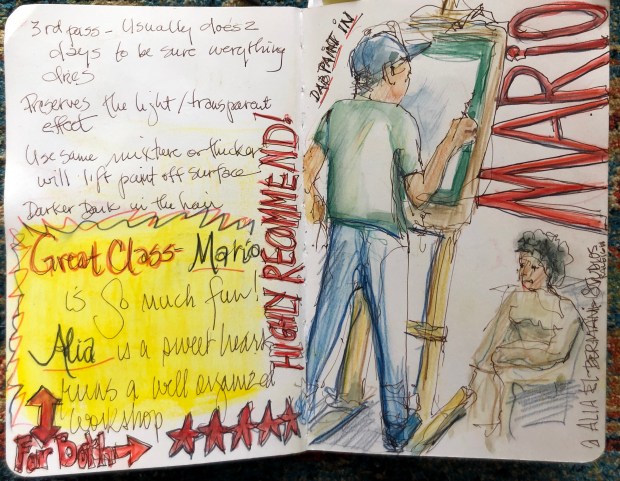 3rd pass - Usually does 2
days to be sure everything
dries
Preserves the light/transparent
effect
Use same mixture or thicker
will lift paint off surface
Darker Dark in the hair
Great Class - Mario
is so much fun!
Alia is a sweet heart
runs a well organized
workshop
For Both
HIGHLY RECOMMEND!
DAB PAINT IN
MARIO
ALIA EL BERMANI STUDIOS